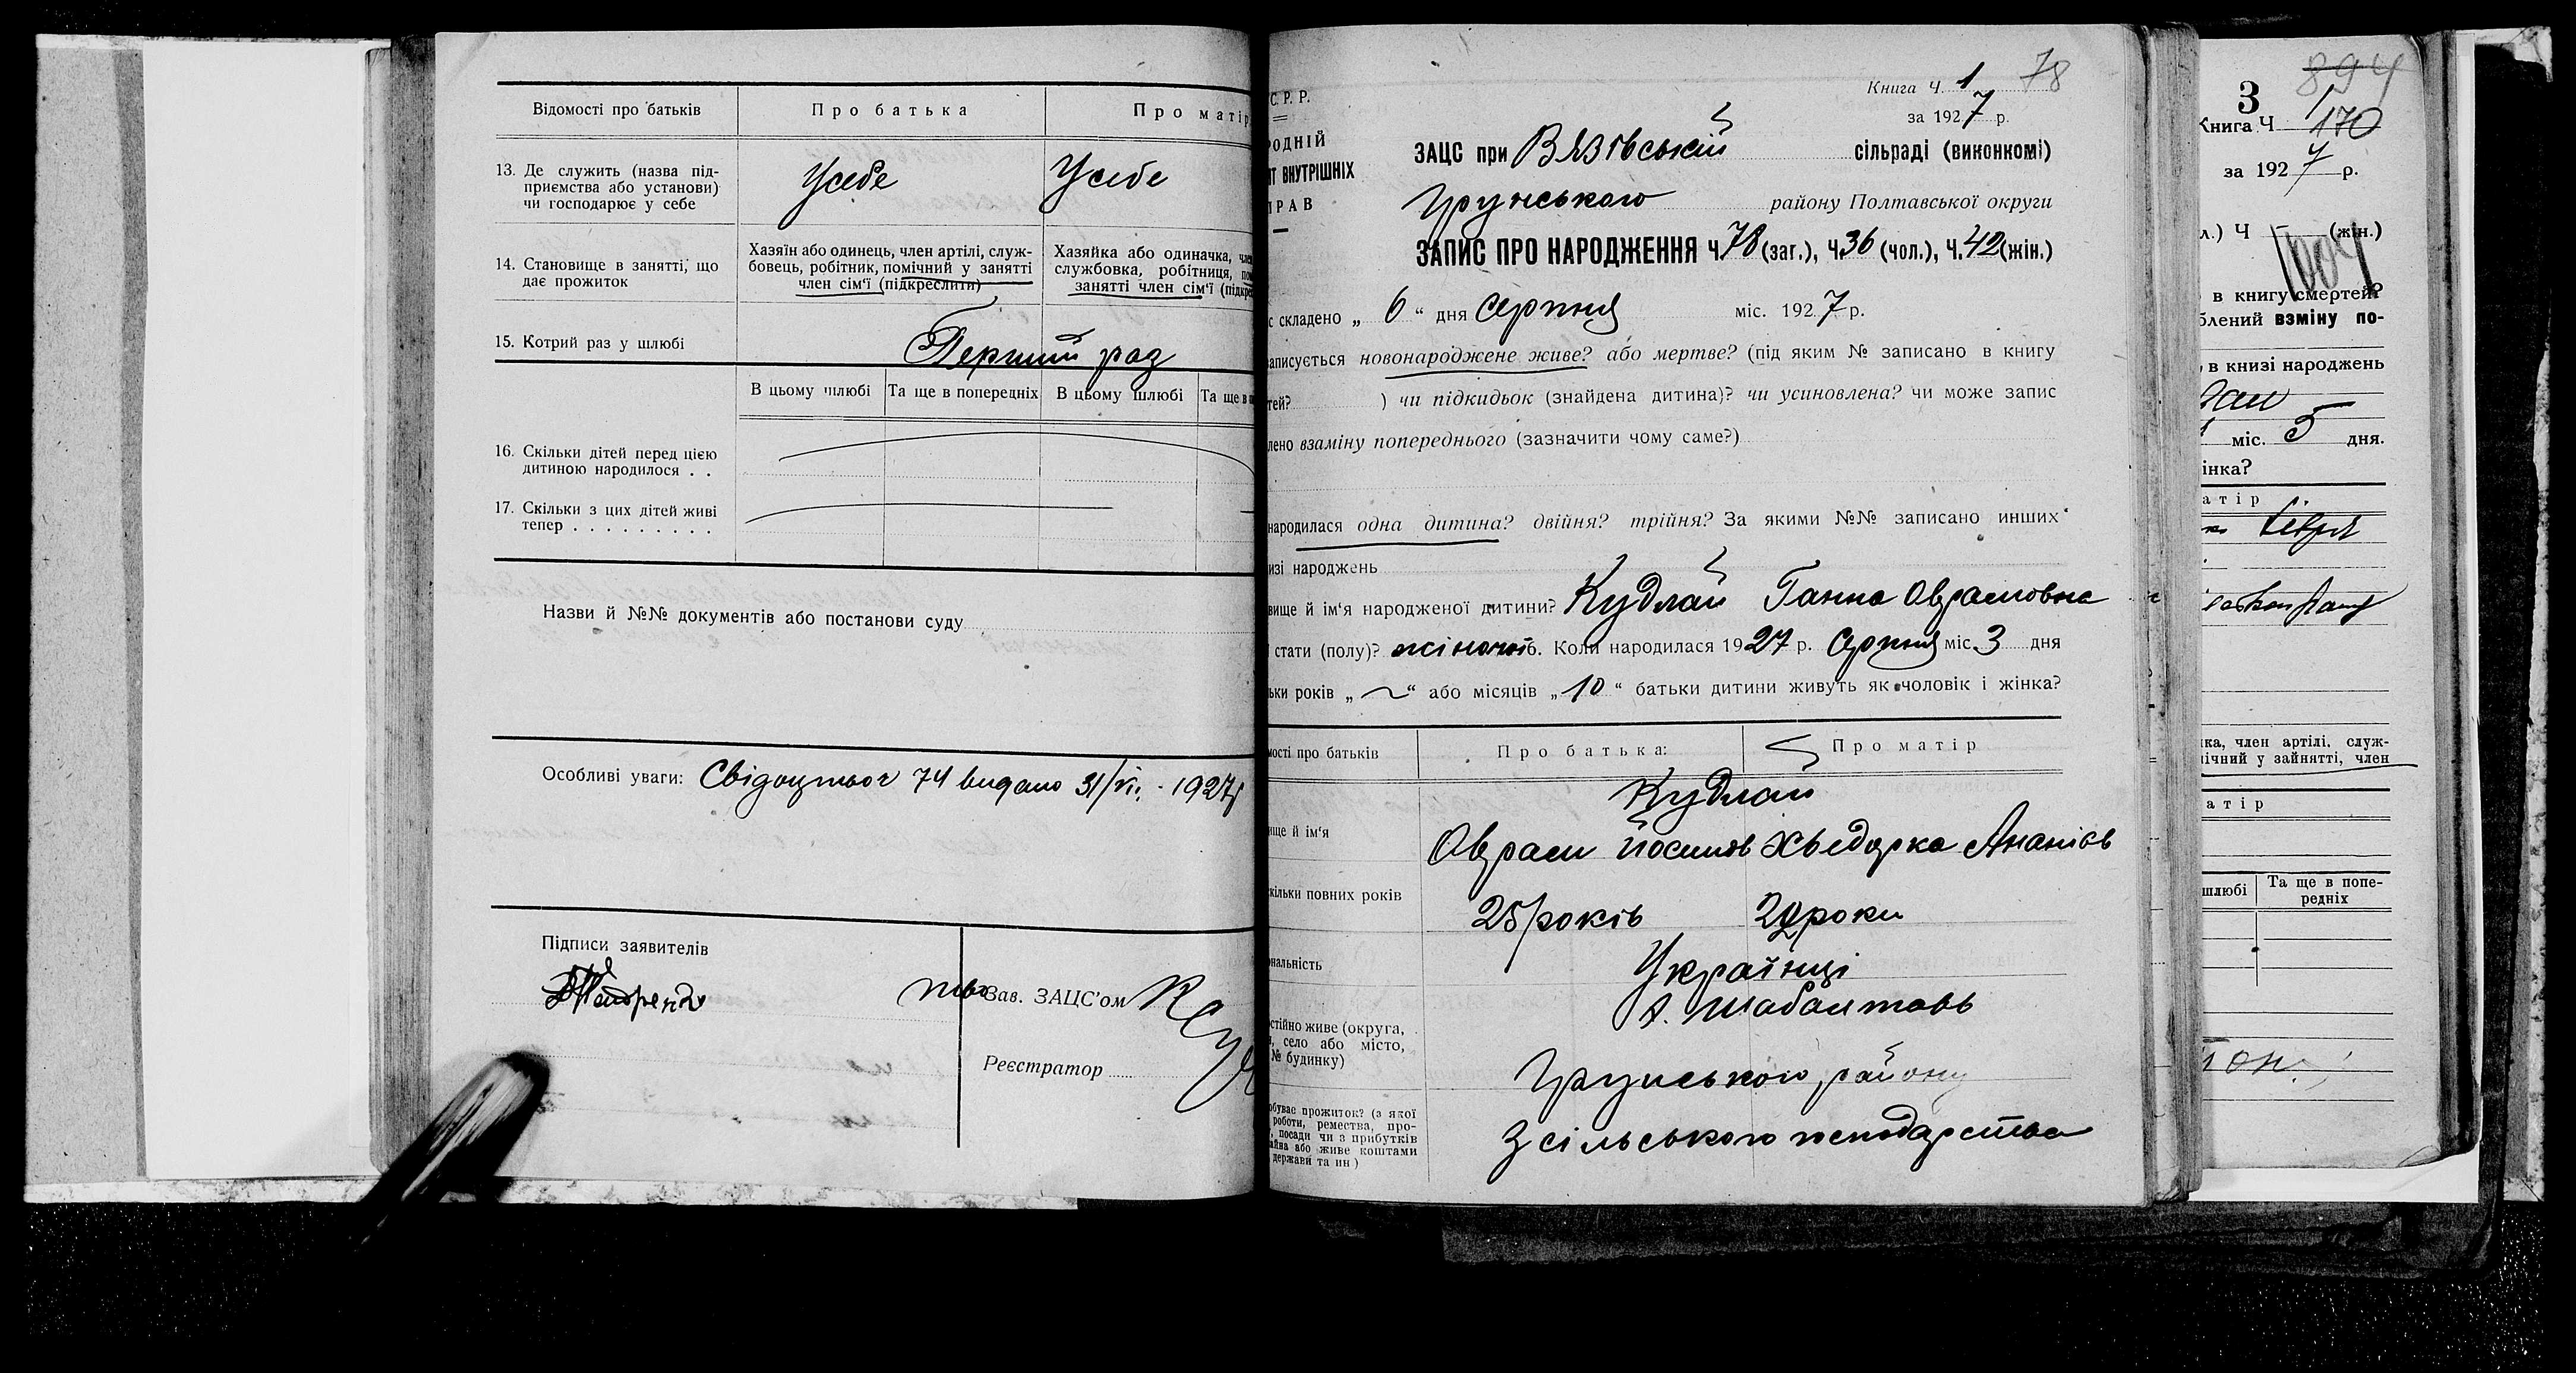 Відомості про батьків
Про батька
Про матір
13. Де служить (назва під-
приємства або установи)
чи господарює у себе
Усебе
Усебе
14. Становище в занятті, що
дає прожиток
Хазяїн або одинець, член артілі, служ-
бовець, робітник, помічний у занятті
член сім'ї (підкреслити)
Хазяйка або одиначка, чле
службовка, робітниця, по
занятті член сім'ї (підкре
15. Котрий раз у шлюбі
Перший раз
В цьому шлюбі
Та ще в попередніх
В цьому шлюбі
Та ще в п
16. Скільки дітей перед цією
дитиною народилося . .
17. Скільки з цих дітей живі
тепер . . . . . . . . .
Назви й №№ документів або постанови суду
Особливі уваги: Свідоцтвоч 74 видано 31/VII - 1927р
Підписи заявителів
Зав. ЗАЦС'ом
Реєстратор
78
Книга Ч. 1
за 1927 р.
С. Р. Р.
РОДНІЙ
Т ВНУТРІШНІХ
ПРАВ
ЗАЦС при Вязівській сільраді (виконкомі)
Грунського району Полтавської округи
ЗАПИС ПРО НАРОДЖЕННЯ Ч. 78 (заг.), Ч. 36 (чол.), Ч. 42 (жін.)
с складено „ 6 “ дня Серпня міс. 1927 р.
аписується новонароджене живе? або мертве? (під яким № записано в книгу
тей? ) чи підкидьок (знайдена дитина)? чи усиновлена? чи може запис
лено взаміну попереднього (зазначити чому саме?)
народилася одна дитина? двійня? трійня? За якими №№ записано инших
изі народжень
вище й ім'я народженої дитини? Кудлай Ганна Оврамовна
стати (полу)? жіночої 6. Коли народилася 1927 р. Серпня міс. 3 дня
ьки років „ ~ “ або місяців „ 10 “ батьки дитини живуть як чоловік і жінка?
мості про батьків
Про батька:
Про матір
Кудлай
ище й ім'я
Оврам Йосипов Хведорка Ананієв
скільки повних років
25 років
22 роки
ональність
Українці
х. Шабалтаєв
остійно живе (округа,
н, село або місто,
№ будинку)
Грунського району
обуває прожиток? (з якої
роботи, ремества, про-
, посади чи з прибутків
айва або живе коштами
держави та ин)
З сільського господарства
3
894
Книга Ч 1
170
за 1927 р.
л.) Ч — (жін.)
в книгу смертей?
блений взміну по-
в книзі народжень
міс. 5 дня.
інка?
атір
ка, член артілі, служ-
ічний у зайнятті, член
атір
шлюбі
Та ще в попе-
редніх